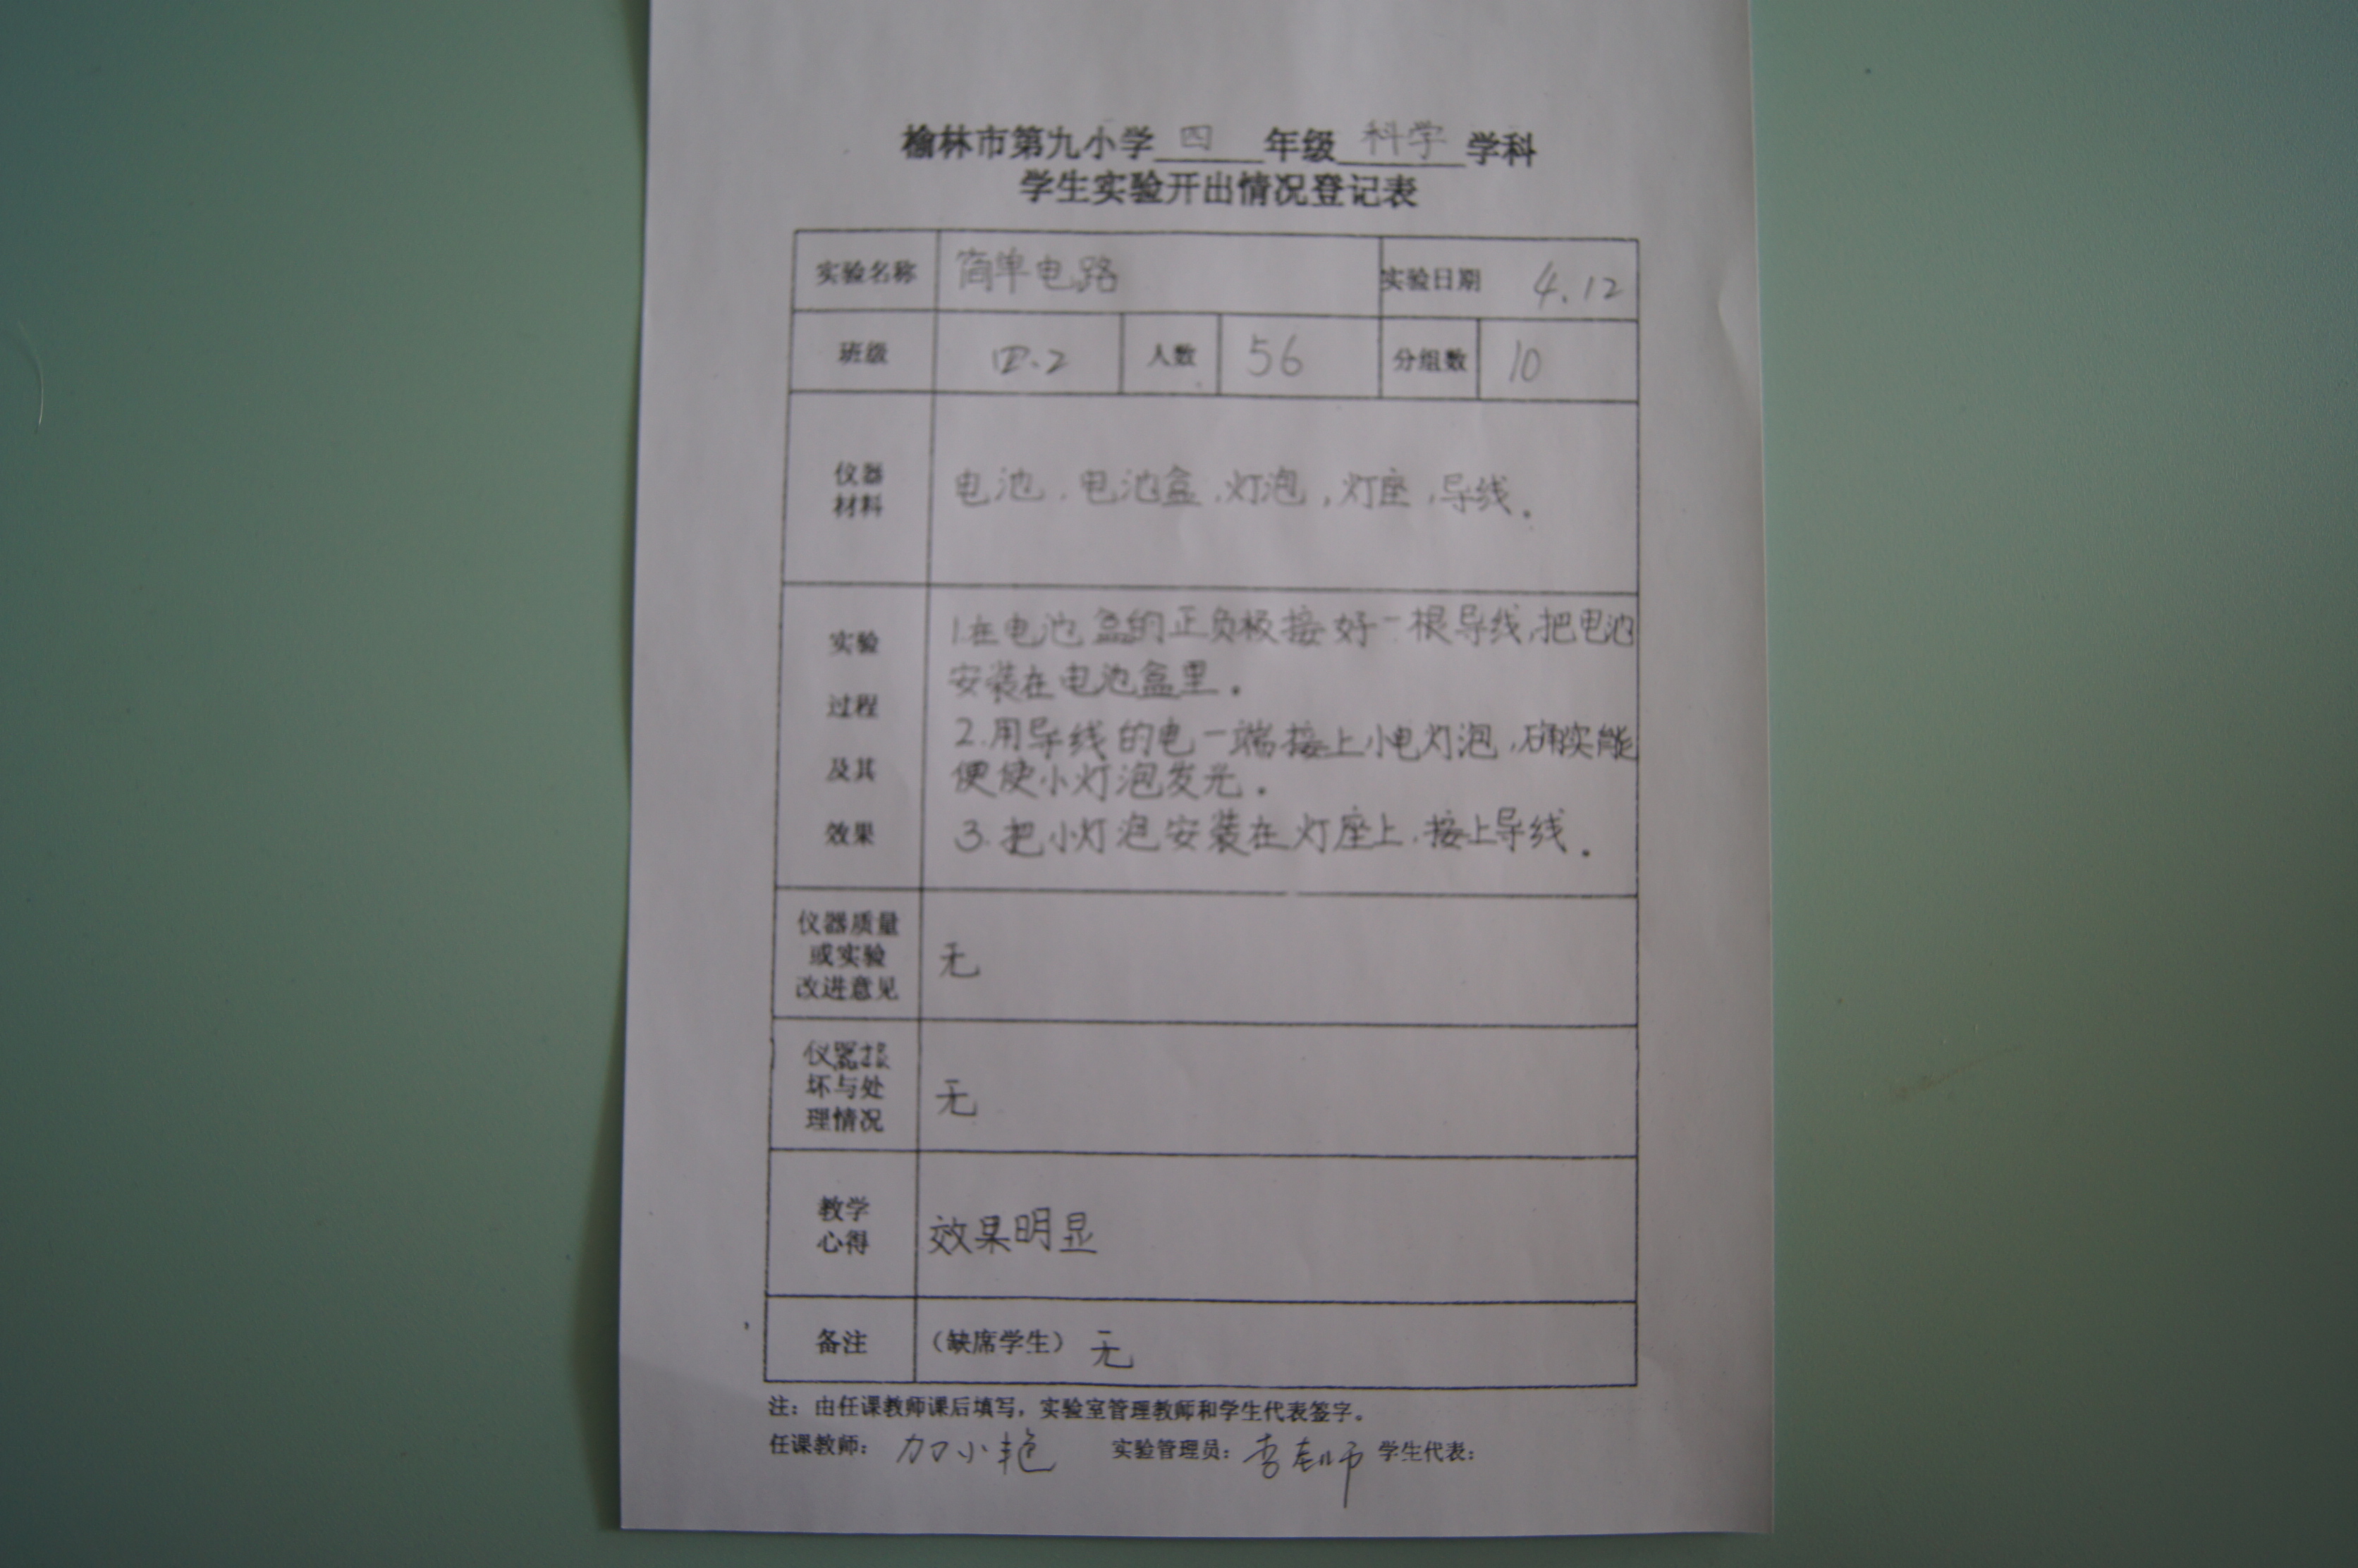 榆林市第九小学 四 年级 科学 学科
学生实验开出情况登记表
实验名称 简单电路 实验日期 4.12
班级 四.2 人数 56 分组数 10
仪器
材料
电池,电池盒,灯泡,灯座,导线。
实验
过程
及其
效果
1.在电池盒的正负极接好一根导线,把电池
安装在电池盒里。
2.用导线的电一端接上小电灯泡,确实能
便使小灯泡发光。
3.把小灯泡安装在灯座上,接上导线。
仪器质量
或实验
改进意见
无
仪器损
坏与处
理情况
无
教学
心得
效果明显
备注 (缺席学生) 无
注:由任课教师课后填写,实验室管理教师和学生代表签字。
任课教师: 加小艳 实验管理员: 李老师 学生代表: